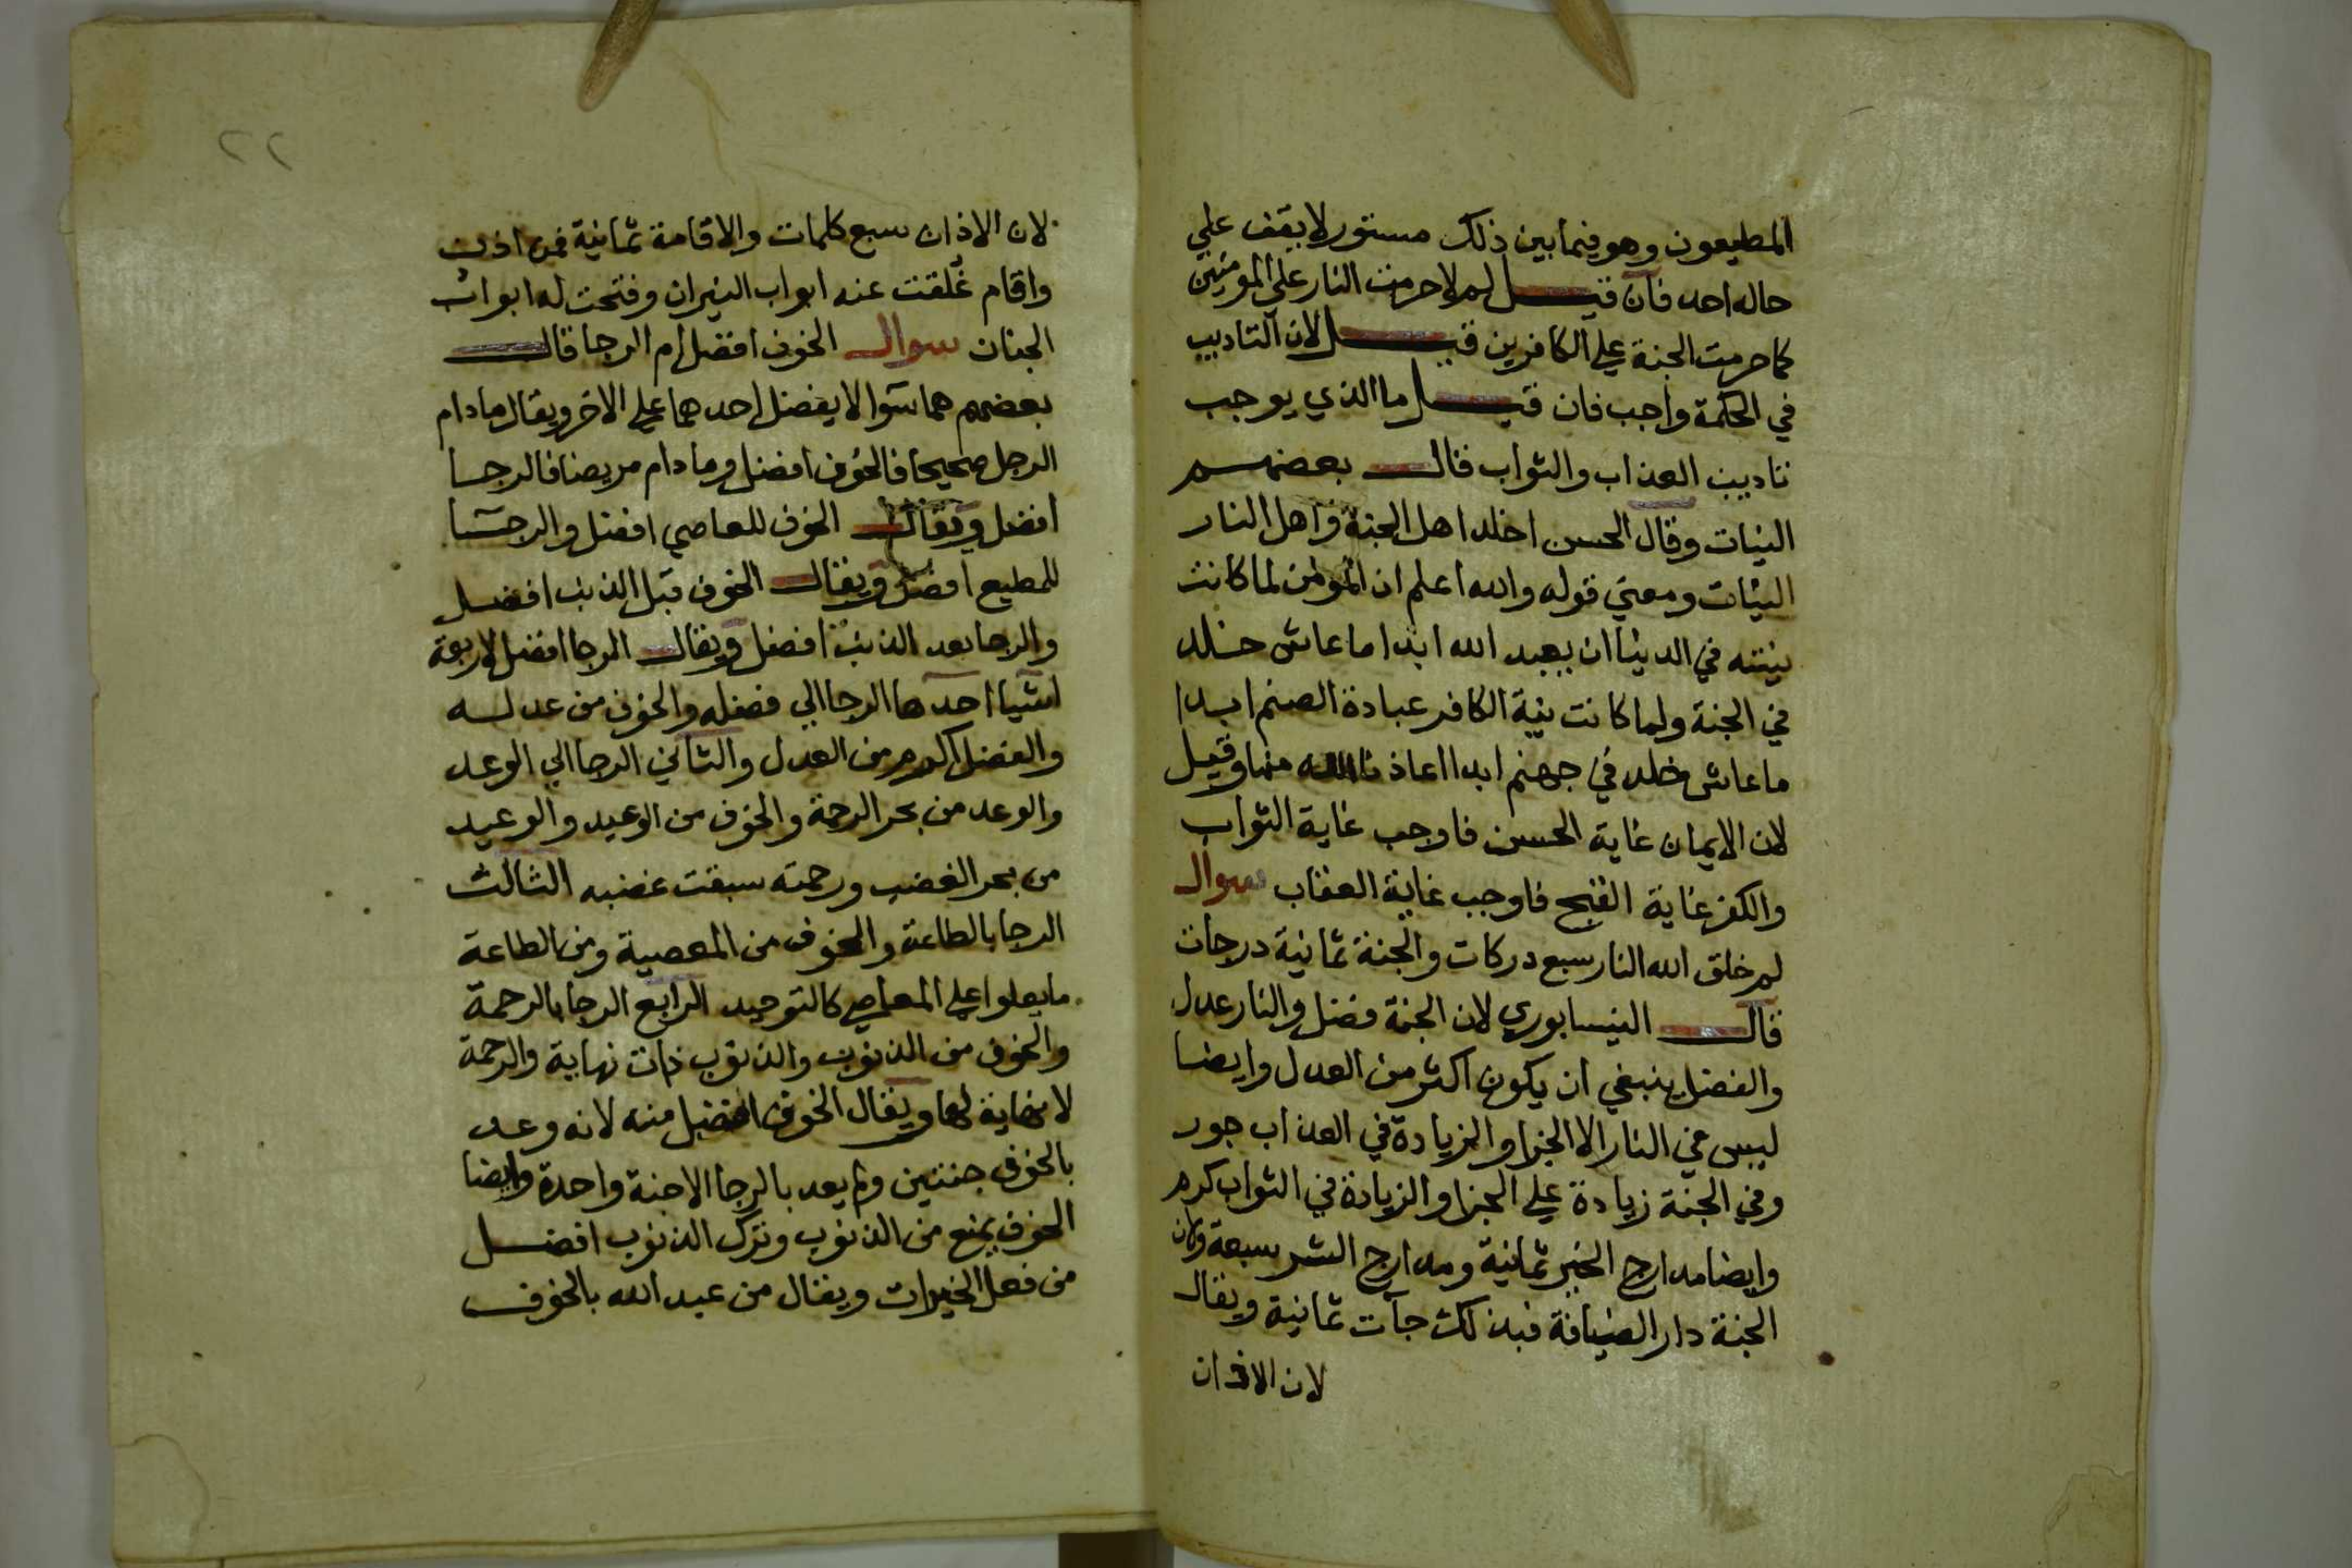 المطيعون وهو فيما بين ذلك مستور لا يقف علي
حاله احد فان قيل لم لا حرمت النار علي المومنين
كما حرمت الجنة علي الكافرين قيل لان التاديب
في الحكمة واجب فان قيل ما الذي يوجب
تاديب العذاب والثواب قال بعضهم
النيات وقال الحسن اخلد اهل الجنة واهل النار
النيات ومعني قوله والله اعلم ان المومن لما كانت
نيته في الدنيا ان يعبد الله ابدا ما عاش خلد
في الجنة ولما كانت نية الكافر عبادة الصنم ابدا
ما عاش خلد في جهنم ابدا اعاذنا الله منها وقيل
لان الايمان غاية الحسن فاوجب غاية الثواب
والكفر غاية القبح فاوجب غاية العقاب سوال
لم خلق الله النار سبع دركات والجنة ثمانية درجات
قال النيسابوري لان الجنة فضل والنار عدل
والفضل ينبغي ان يكون اكثر من العدل وايضا
ليس في النار الا الجزا والزيادة في العذاب جور
وفي الجنة زيادة علي الجزا والزيادة في الثواب كرم
وايضا مدارج الخير ثمانية ومدارج الشر سبعة ولان
الجنة دار الضيافة فبذلك جآت ثمانية ويقال
لان الاذان
٢٢
لان الاذان سبع كلمات والاقامة ثمانية فمن اذن
واقام غلقت عنه ابواب النيران وفتحت له ابواب
الجنان سوال الخوف افضل ام الرجا قال
بعضهم هما سوا لا يفضل احدهما علي الاخر ويقال ما دام
الرجل صحيحا فالخوف افضل وما دام مريضا فالرجا
افضل ويقال الخوف للعاصي افضل والرجا
للمطيع افضل ويقال الخوف قبل الذنب افضل
والرجا بعد الذنب افضل ويقال الرجا افضل لاربعة
اشيا احدها الرجا الي فضله والخوف من عدله
والفضل اكرم من العدل والثاني الرجا الي الوعد
والوعد من بحر الرحمة والخوف من الوعيد والوعيد
من بحر الغضب ورحمته سبقت غضبه الثالث
الرجا بالطاعة والخوف من المعصية ومن الطاعة
ما يعلوا علي المعاصي كالتوحيد الرابع الرجا بالرحمة
والخوف من الذنوب والذنوب ذات نهاية والرحمة
لا نهاية لها ويقال الخوف افضل منه لانه وعد
بالخوف جنتين ولم يعد بالرجا الا جنة واحدة وايضا
الخوف يمنع من الذنوب وترك الذنوب افضل
من فعل الخيرات ويقال من عبد الله بالخوف